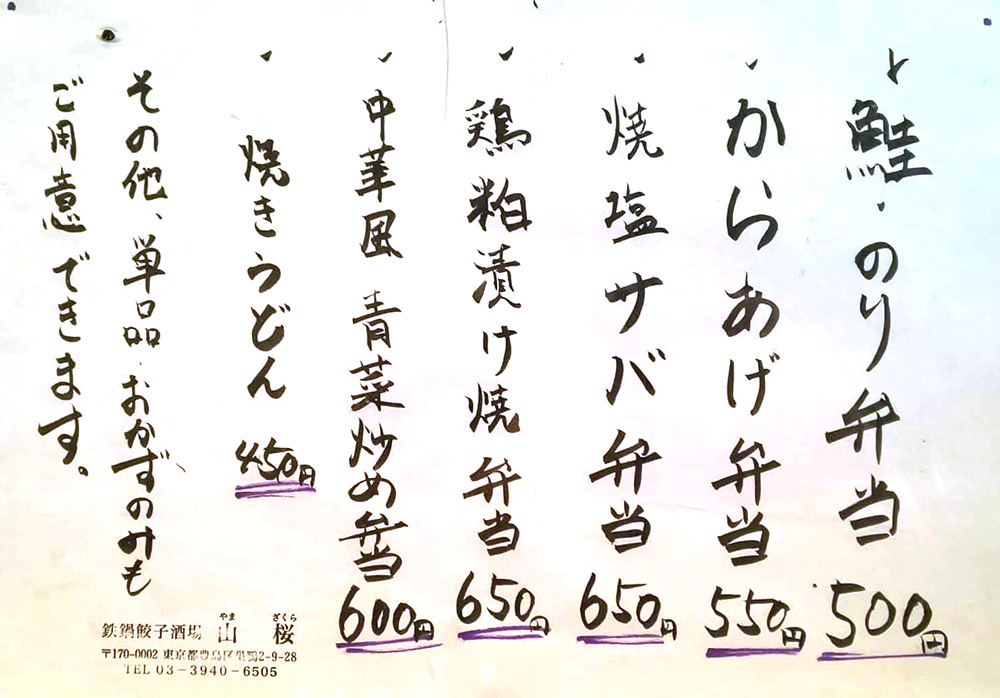 鮭・のり弁当 500円
からあげ弁当 550円
焼塩サバ弁当 650円
鶏粕漬け焼弁当 650円
中華風 青菜炒め弁当 600円
焼きうどん 450円
その他、単品・おかずのみも
ご用意できます。
鉄鍋餃子酒場 山桜
やま ざくら
〒170-0002 東京都豊島区巣鴨2-9-28
TEL 03-3940-6505